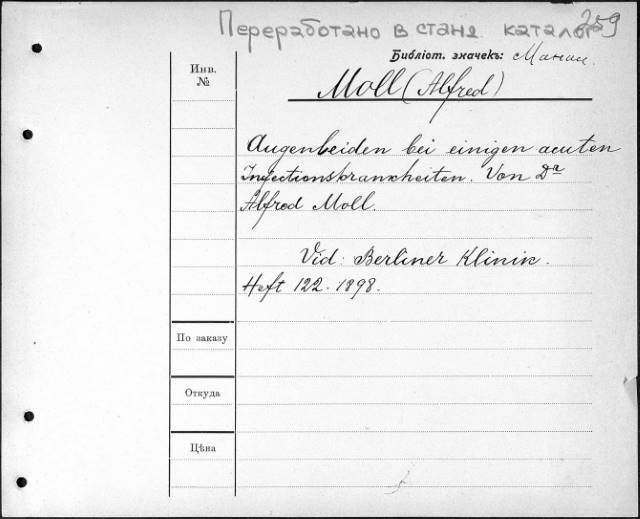 Переработано в станд. каталог 259
Библіот. значекъ:
Инв.
№
Moll (Alfred)
Augenleiden bei einigen acuten
Infectionskrankheiten. Von Dr
Alfred Moll.
Vid: Berliner Klinik.
Heft 122. 1898.
По заказу
Откуда
Цѣна